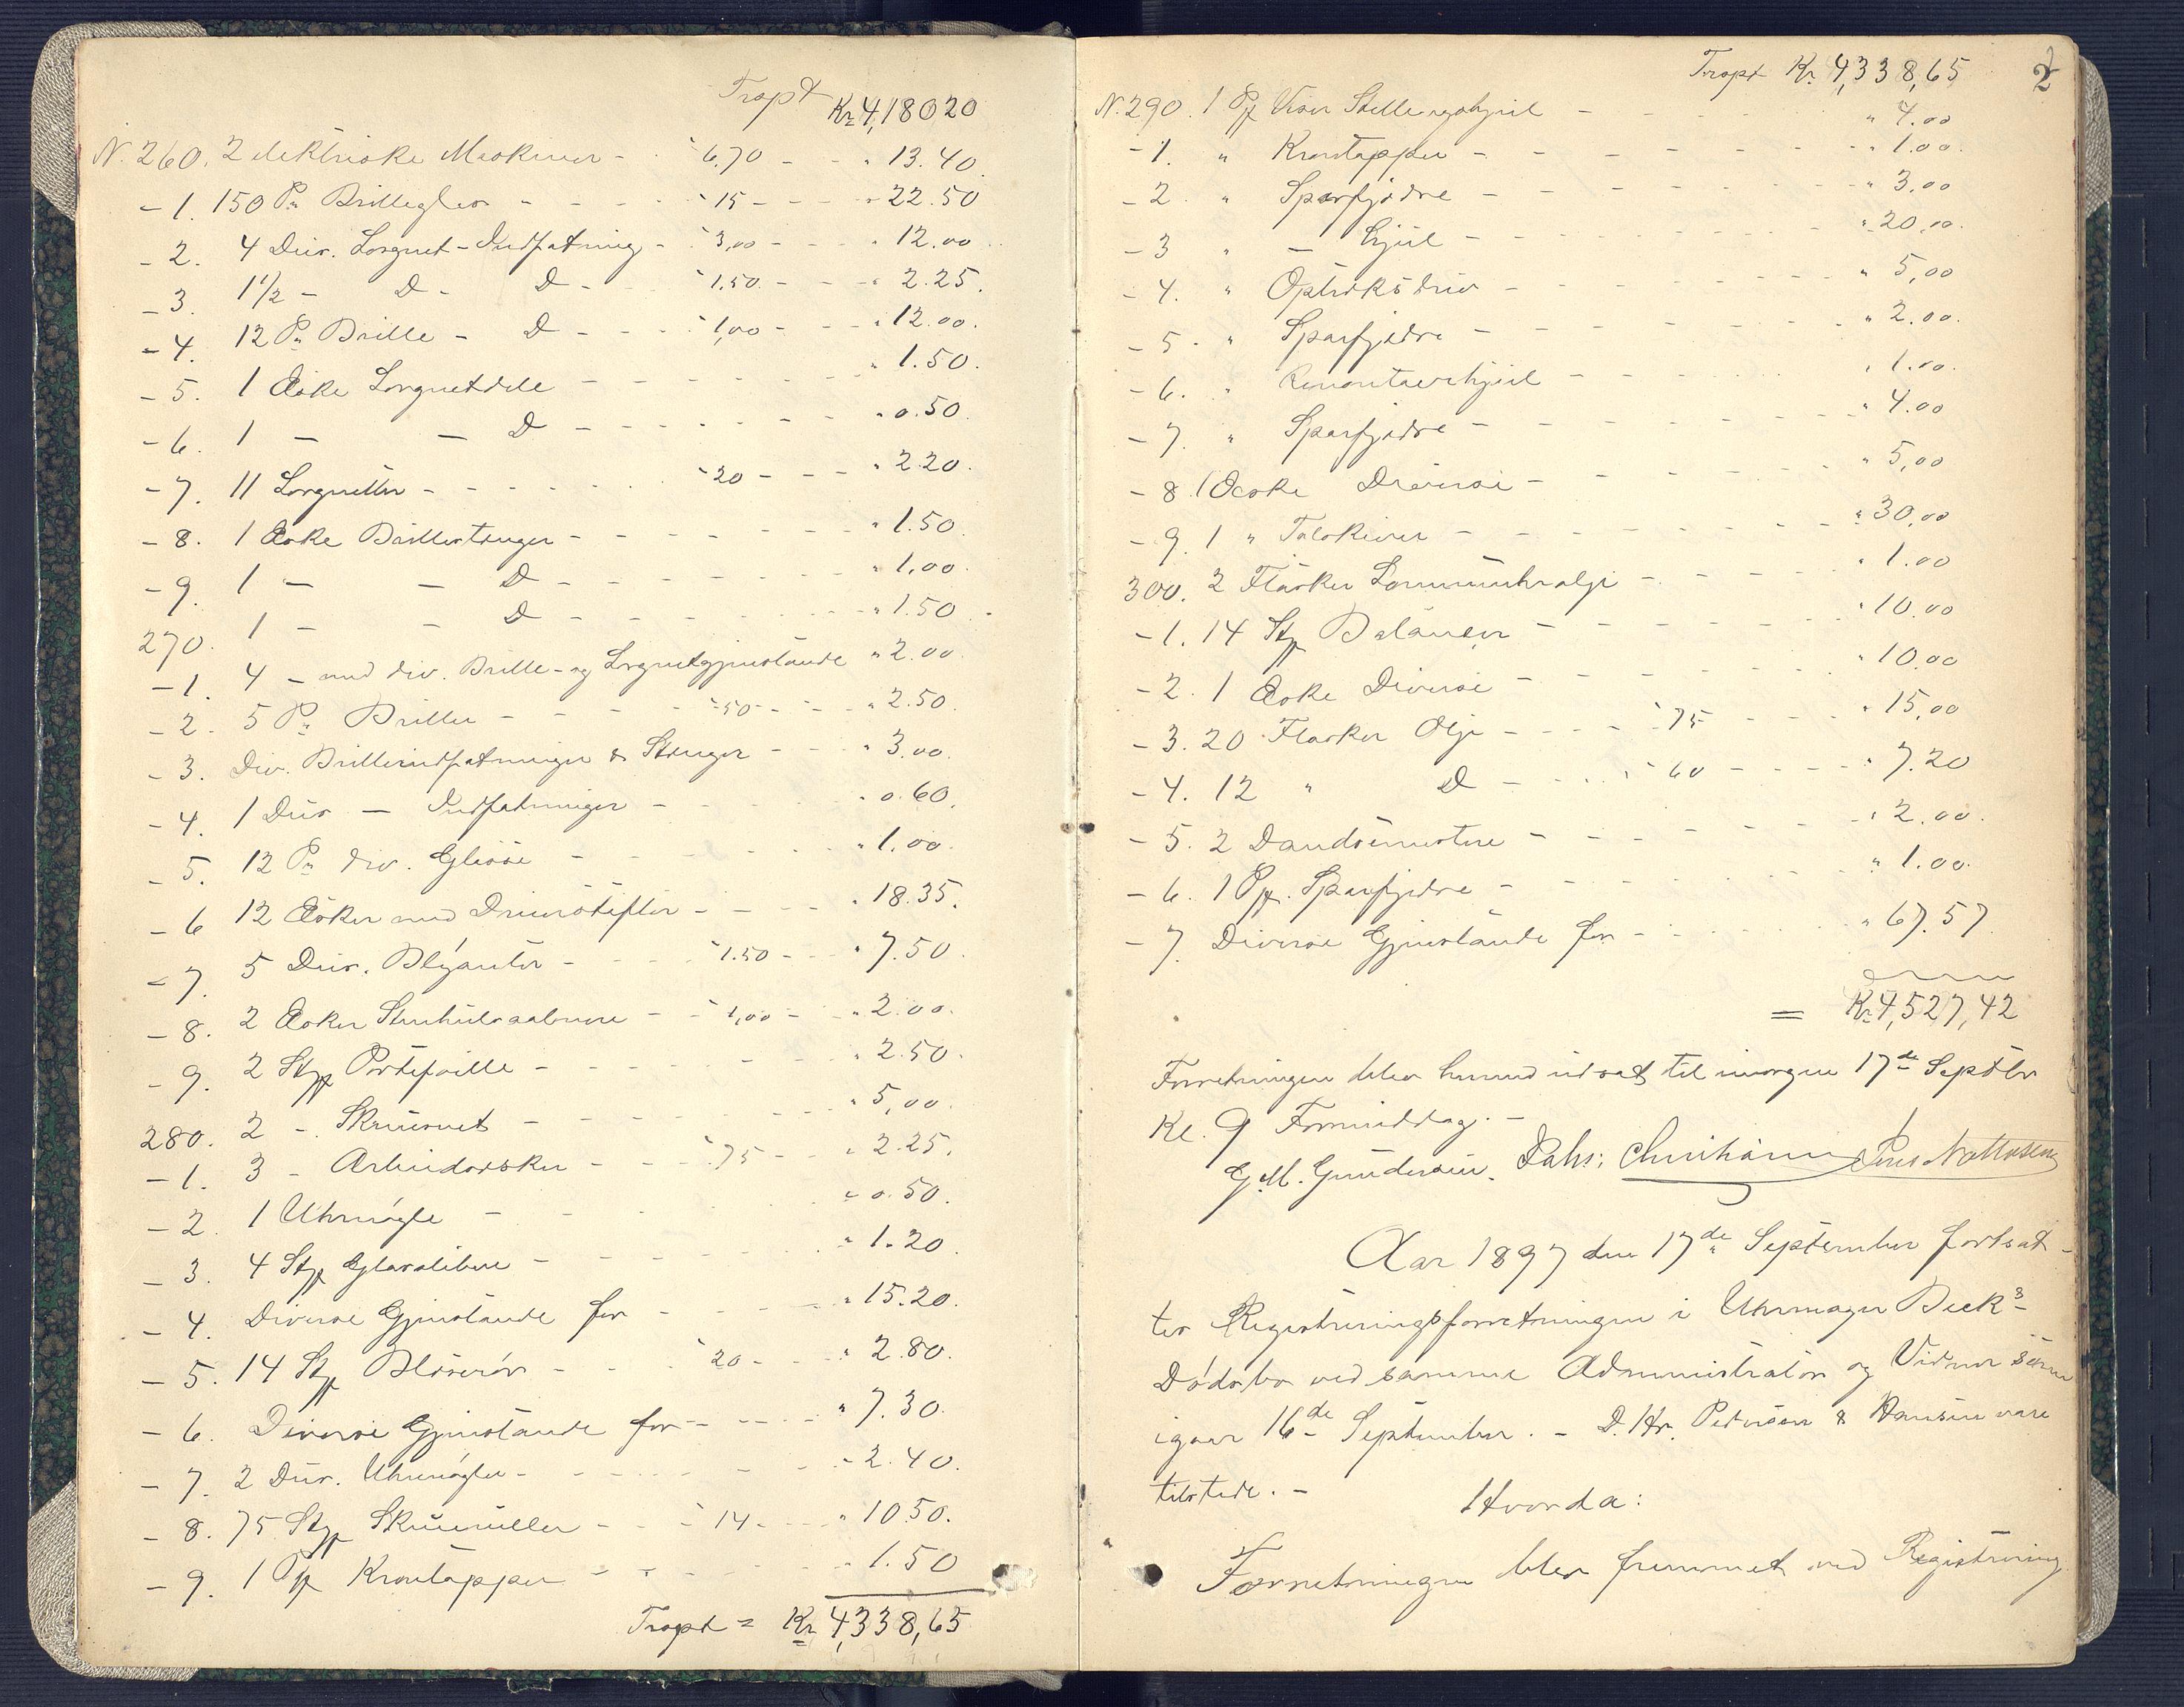 Trspt Kr 4,180 20
N. 260. 2 elektriske Maskiner - " 6.70 - " 13.40.
- 1. 150 Pr Brilleglas - - " 15 - - " 22.50
- 2. 4 Dus. Lorgnet-Indfatning - " 3,00 - - " 12.00
- 3. 1 1/2 - D - D - " 1.50 - - " 2.25.
- 4. 12 Pr Brille - D - - " 1,00 - - " 12.00.
- 5. 1 Æske Lorgnetdele - - - " 1.50.
- 6. 1 - - D - - - " 0.50.
- 7. 11 Lorgnetter - - - " 20 - - " 2.20.
- 8. 1 Æske Brillestænger - - - " 1.50.
- 9. 1 - - D - - - " 1.00.
270. 1 - - D - - - " 1.50.
- 1. 4 - med div. Brille- og Lorgnetgjenstande " 2.00
- 2. 5 Pr Briller - - - " 50 - - " 2.50.
- 3. Div. Brilleindfatninger & Stænger - - " 3.00.
- 4. 1 Dus - Indfatninger - - " 0.60.
- 5. 12 Pr div. Glasse - - - " 1.00.
- 6 12 Æsker med Skruestifter - - " 18.35.
- 7. 5 Dus. Blyanter - - " 1.50 - - " 7.50.
- 8. 2 Æsker Stenhulsaabnere - " 1,00 - " 2.00.
- 9. 2 Stpr Portefoille - - - " 2.50.
280. 2 - Skruesnet - - - " 5,00.
- 1. 3 - Arbeidsdosker - - " 75 - " 2.25.
- 2. 1 Uhrnøgle - - - " 0.50.
- 3. 4 Stpr Glasslibere - - - " 1.20.
- 4. Diverse Gjenstande for - - " 15.20.
- 5. 14 Stpr Blæserør - - " 20 - - " 2.80.
- 6. Diverse Gjenstande for - - " 7.30.
- 7. 2 Dus. Uhrnøgler - - - " 2.40.
- 8. 75 Stpr Skrueruller - - " 14 - - " 10.50.
- 9. 1 Pf Krontapper - - - " 1.50
Trspt = Kr 4,338,65
Trspt Kr. 4,338,65 2
N. 290. 1 Pf Viser Stillingshjul - - " 4.00
- 1. " Krontapper - - - " 1.00.
- 2. " Sparfjedre - - - " 3,00
- 3 " - hjul - - - " 20,00.
- 4. " Optræksdriv - - - " 5,00
- 5. " Sparfjedre - - - " 2.00.
- 6. " Remontoirhjul - - - " 1.00.
- 7. " Sparfjedre - - - " 4.00
- 8. 1 Æske Diverse - - - " 5,00
- 9. 1 " Talskiver - - - " 30,00
300. 2 Flasker Lommeuhrolje - - " 1.00
- 1. 14 Stpr Balancer - - - " 10.00
- 2. 1 Æske Diverse - - - " 10.00
- 3. 20 Flasker Olje - - " 75 - " 15,00
- 4. 12 " D - - " 60 - - " 7.20
- 5. 2 Baandsnustere - - - " 2.00.
- 6. 1 Pf. Sparfjedre - - - " 1.00.
- 7. Diverse Gjenstande for - - " 67.57
= Kr 4,527,42
Forretningen blev hermed udsat til imorgen 17de Septbr
Kl. 9 Formiddag. -
G. M. Gundersen. Johs: Christiansen Jens Mathisen
Aar 1897 den 17de September fortsat-
tes Registreringsforretningen i Uhrmager Becks
Dødsbo ved samme Administrator og Vidner som
igaar 16de September. - D.Hr. Pedersen & Hansen vare
tilstede. - Hvorda:
Forretningen blev fremmet ved Registrering